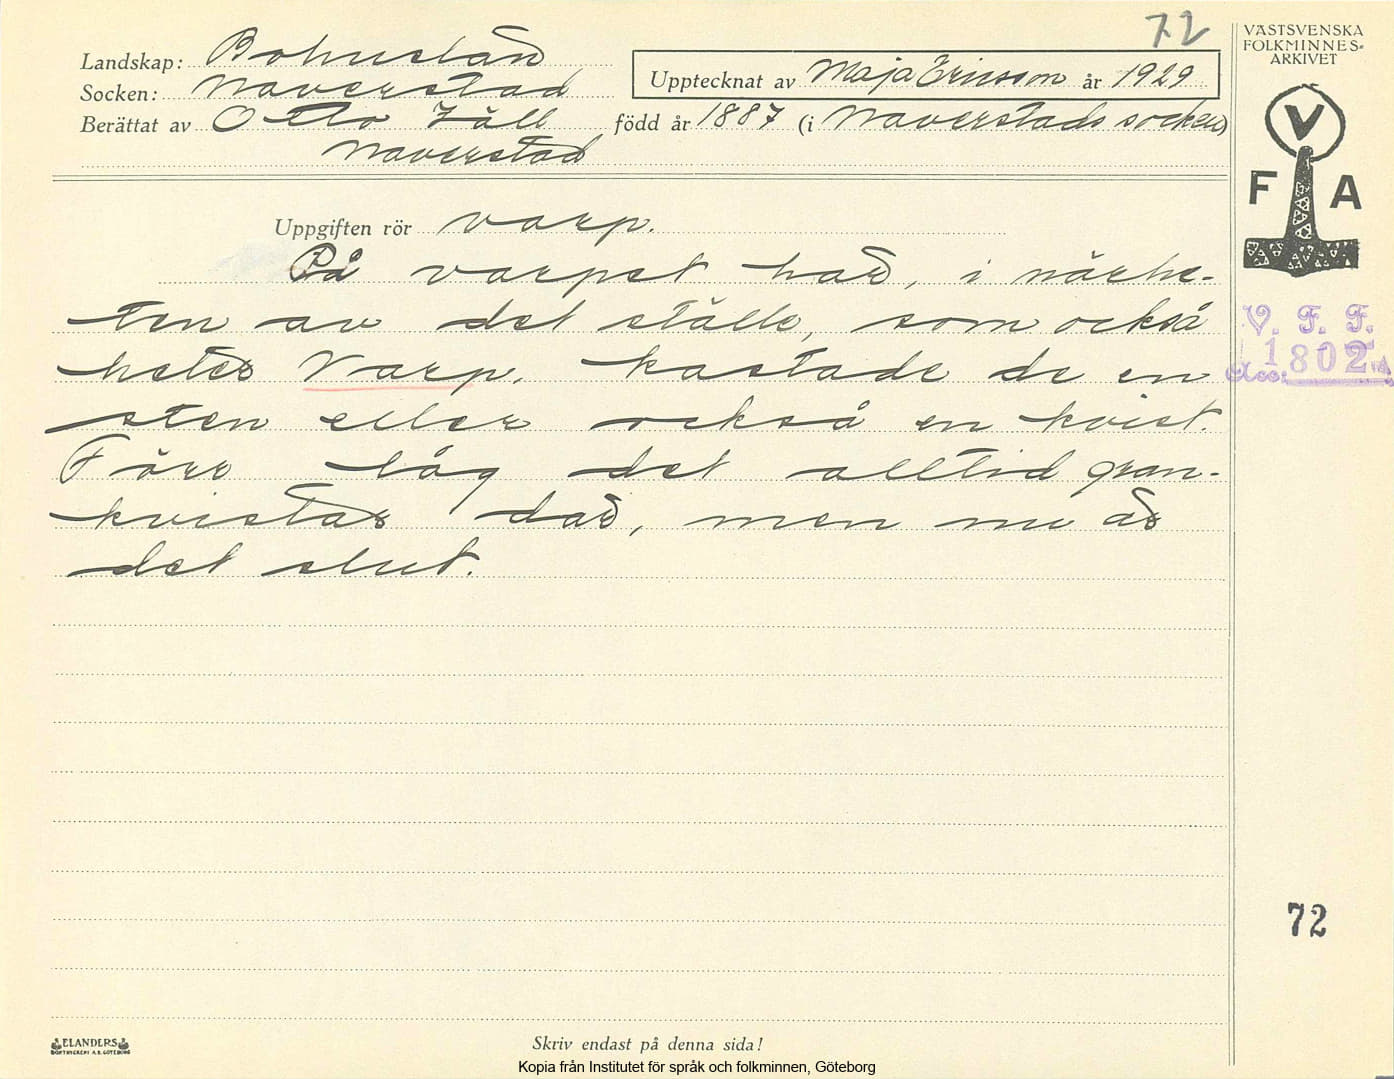 72
VÄSTSVENSKA
FOLKMINNES-
ARKIVET
Landskap: Bohuslän
Upptecknat av Maja Ericsson år 1929
Socken: Naverstad
Berättat av Otto Zäll född år 1887 (i Naverstads socken)
Naverstad
V
F A
Uppgiften rör varp.
På varpet här, i närhe-
ten av det ställe, som också
heter Varp, kastade de en
sten eller också en kvist.
Förr låg det alltid gran-
kvistar där, men nu är
det slut.
V. F. F.
Acc. 1802
72
ELANDERS
BOKTRYCKERI A.B. GÖTEBORG
Skriv endast på denna sida!
Kopia från Institutet för språk och folkminnen, Göteborg